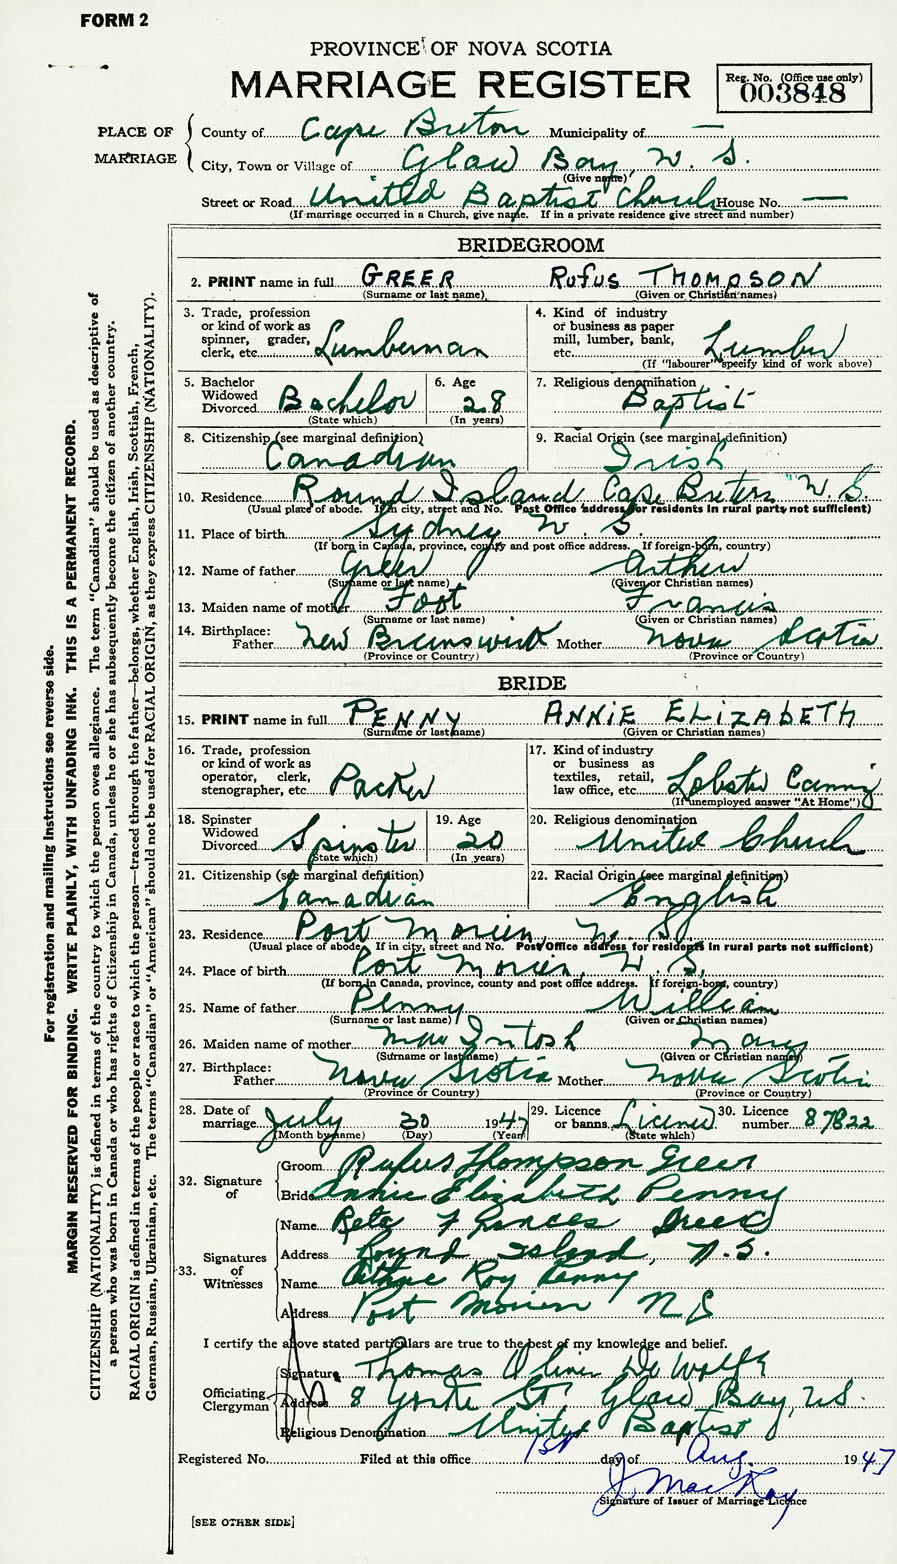 FORM 2
PROVINCE OF NOVA SCOTIA
MARRIAGE REGISTER
Reg. No. (Office use only)
003848
PLACE OF MARRIAGE
County of Cape Breton Municipality of —
City, Town or Village of Glace Bay, N. S.
(Give name)
Street or Road United Baptist Church House No. —
(If marriage occurred in a Church, give name. If in a private residence give street and number)
BRIDEGROOM
2. PRINT name in full GREER RUFUS THOMPSON
(Surname or last name) (Given or Christian names)
3. Trade, profession or kind of work as spinner, grader, clerk, etc. Lumberman
4. Kind of industry or business as paper mill, lumber, bank, etc. Lumber
(If "labourer" specify kind of work above)
5. Bachelor Widowed Divorced Bachelor
(State which)
6. Age 28
(In years)
7. Religious denomination Baptist
8. Citizenship (see marginal definition) Canadian
9. Racial Origin (see marginal definition) Irish
10. Residence Round Island Cape Breton N. S.
(Usual place of abode. If in city, street and No. Post Office address for residents in rural parts not sufficient)
11. Place of birth Sydney N. S.
(If born in Canada, province, county and post office address. If foreign-born, country)
12. Name of father Greer Arthur
(Surname or last name) (Given or Christian names)
13. Maiden name of mother Foot Francis
(Surname or last name) (Given or Christian names)
14. Birthplace: Father New Brunswick Mother Nova Scotia
(Province or Country) (Province or Country)
BRIDE
15. PRINT name in full PENNY ANNIE ELIZABETH
(Surname or last name) (Given or Christian names)
16. Trade, profession or kind of work as operator, clerk, stenographer, etc. Packer
17. Kind of industry or business as textiles, retail, law office, etc. Lobster
(If unemployed answer "At Home")
18. Spinster Widowed Divorced Spinster
(State which)
19. Age 20
(In years)
20. Religious denomination United Church
21. Citizenship (see marginal definition) Canadian
22. Racial Origin (see marginal definition) English
23. Residence Port Morien, N. S.
(Usual place of abode. If in city, street and No. Post Office address for residents in rural parts not sufficient)
24. Place of birth Port Morien, N. S.
(If born in Canada, province, county and post office address. If foreign-born, country)
25. Name of father Penny William
(Surname or last name) (Given or Christian names)
26. Maiden name of mother MacIntosh Mary
(Surname or last name) (Given or Christian names)
27. Birthplace: Father Nova Scotia Mother Nova Scotia
(Province or Country) (Province or Country)
28. Date of marriage July 30 1947
(Month by name) (Day) (Year)
29. Licence or banns License
(State which)
30. Licence number 87822
32. Signature of
Groom Rufus Thompson Greer
Bride Annie Elizabeth Penny
33. Signatures of Witnesses
Name Reta Frances Greer
Address Round Island, N. S.
Name Arthur Roy Penny
Address Port Morien N S
I certify the above stated particulars are true to the best of my knowledge and belief.
Officiating Clergyman
Signature Thomas Oliver DeWolfe
Address 8 Yorke St Glace Bay, N.S.
Religious Denomination United Baptist
Registered No. Filed at this office 1st day of Aug. 1947
J MacKay
Signature of Issuer of Marriage Licence
[SEE OTHER SIDE]
For registration and mailing instructions see reverse side.
MARGIN RESERVED FOR BINDING. WRITE PLAINLY, WITH UNFADING INK. THIS IS A PERMANENT RECORD.
CITIZENSHIP (NATIONALITY) is defined in terms of the country to which the person owes allegiance. The term "Canadian" should be used as descriptive of
a person who was born in Canada or who has rights of Citizenship in Canada, unless he or she has subsequently become the citizen of another country.
RACIAL ORIGIN is defined in terms of the people or race to which the person—traced through the father—belongs; whether English, Irish, Scottish, French,
German, Russian, Ukrainian, etc. The terms "Canadian" or "American" should not be used for RACIAL ORIGIN, as they express CITIZENSHIP (NATIONALITY).